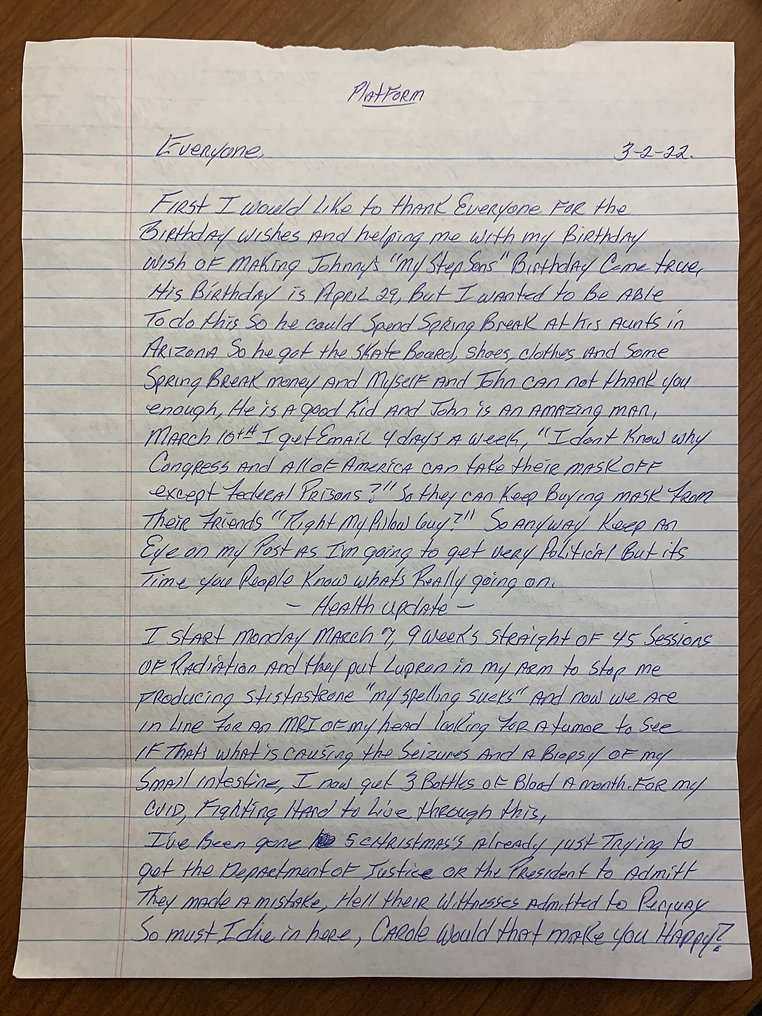 Platform
Everyone, 3-2-22.
First I would Like to thank Everyone For the
Birthday wishes And helping me with my Birthday
wish of making Johnny's "my Step Sons" Birthday Come true,
His Birthday is April 29, But I wanted to Be Able
To do this so he could Spend Spring Break At his Aunts in
Arizona So he got the Skate Board, shoes, clothes And Some
Spring Break money And Myself And John can not thank you
enough, He is A good Kid And John is An Amazing man,
March 10th I get Email 4 days A week, "I dont Know why
Congress and All of America can take their mask off
except Federal Prisons?" So they can Keep Buying mask From
Their Friends "Right My Pillow Guy?" So anyway Keep An
Eye on my Post As I'm going to get very Political But its
Time you People Know whats Really going on.
- Health Update -
I start Monday March 7, 9 weeks straight of 45 Sessions
of Radiation And they put Lupron in my Arm to stop me
producing stistastrone "my spelling sucks" And now we are
in line For An MRI of my head looking For a tumor to see
if Thats what is causing the Seizures And A Biopsy of my
Small intestine, I now get 3 Bottles of Blood A month For my
CVID, Fighting Hard to Live through this,
I've Been gone 5 Christmas's Already just Trying to
get the Department of Justice or the President to Admitt
They made a mistake, Hell their Witnesses Admitted to Perjury
So must I die in here, Carole would that make you Happy?